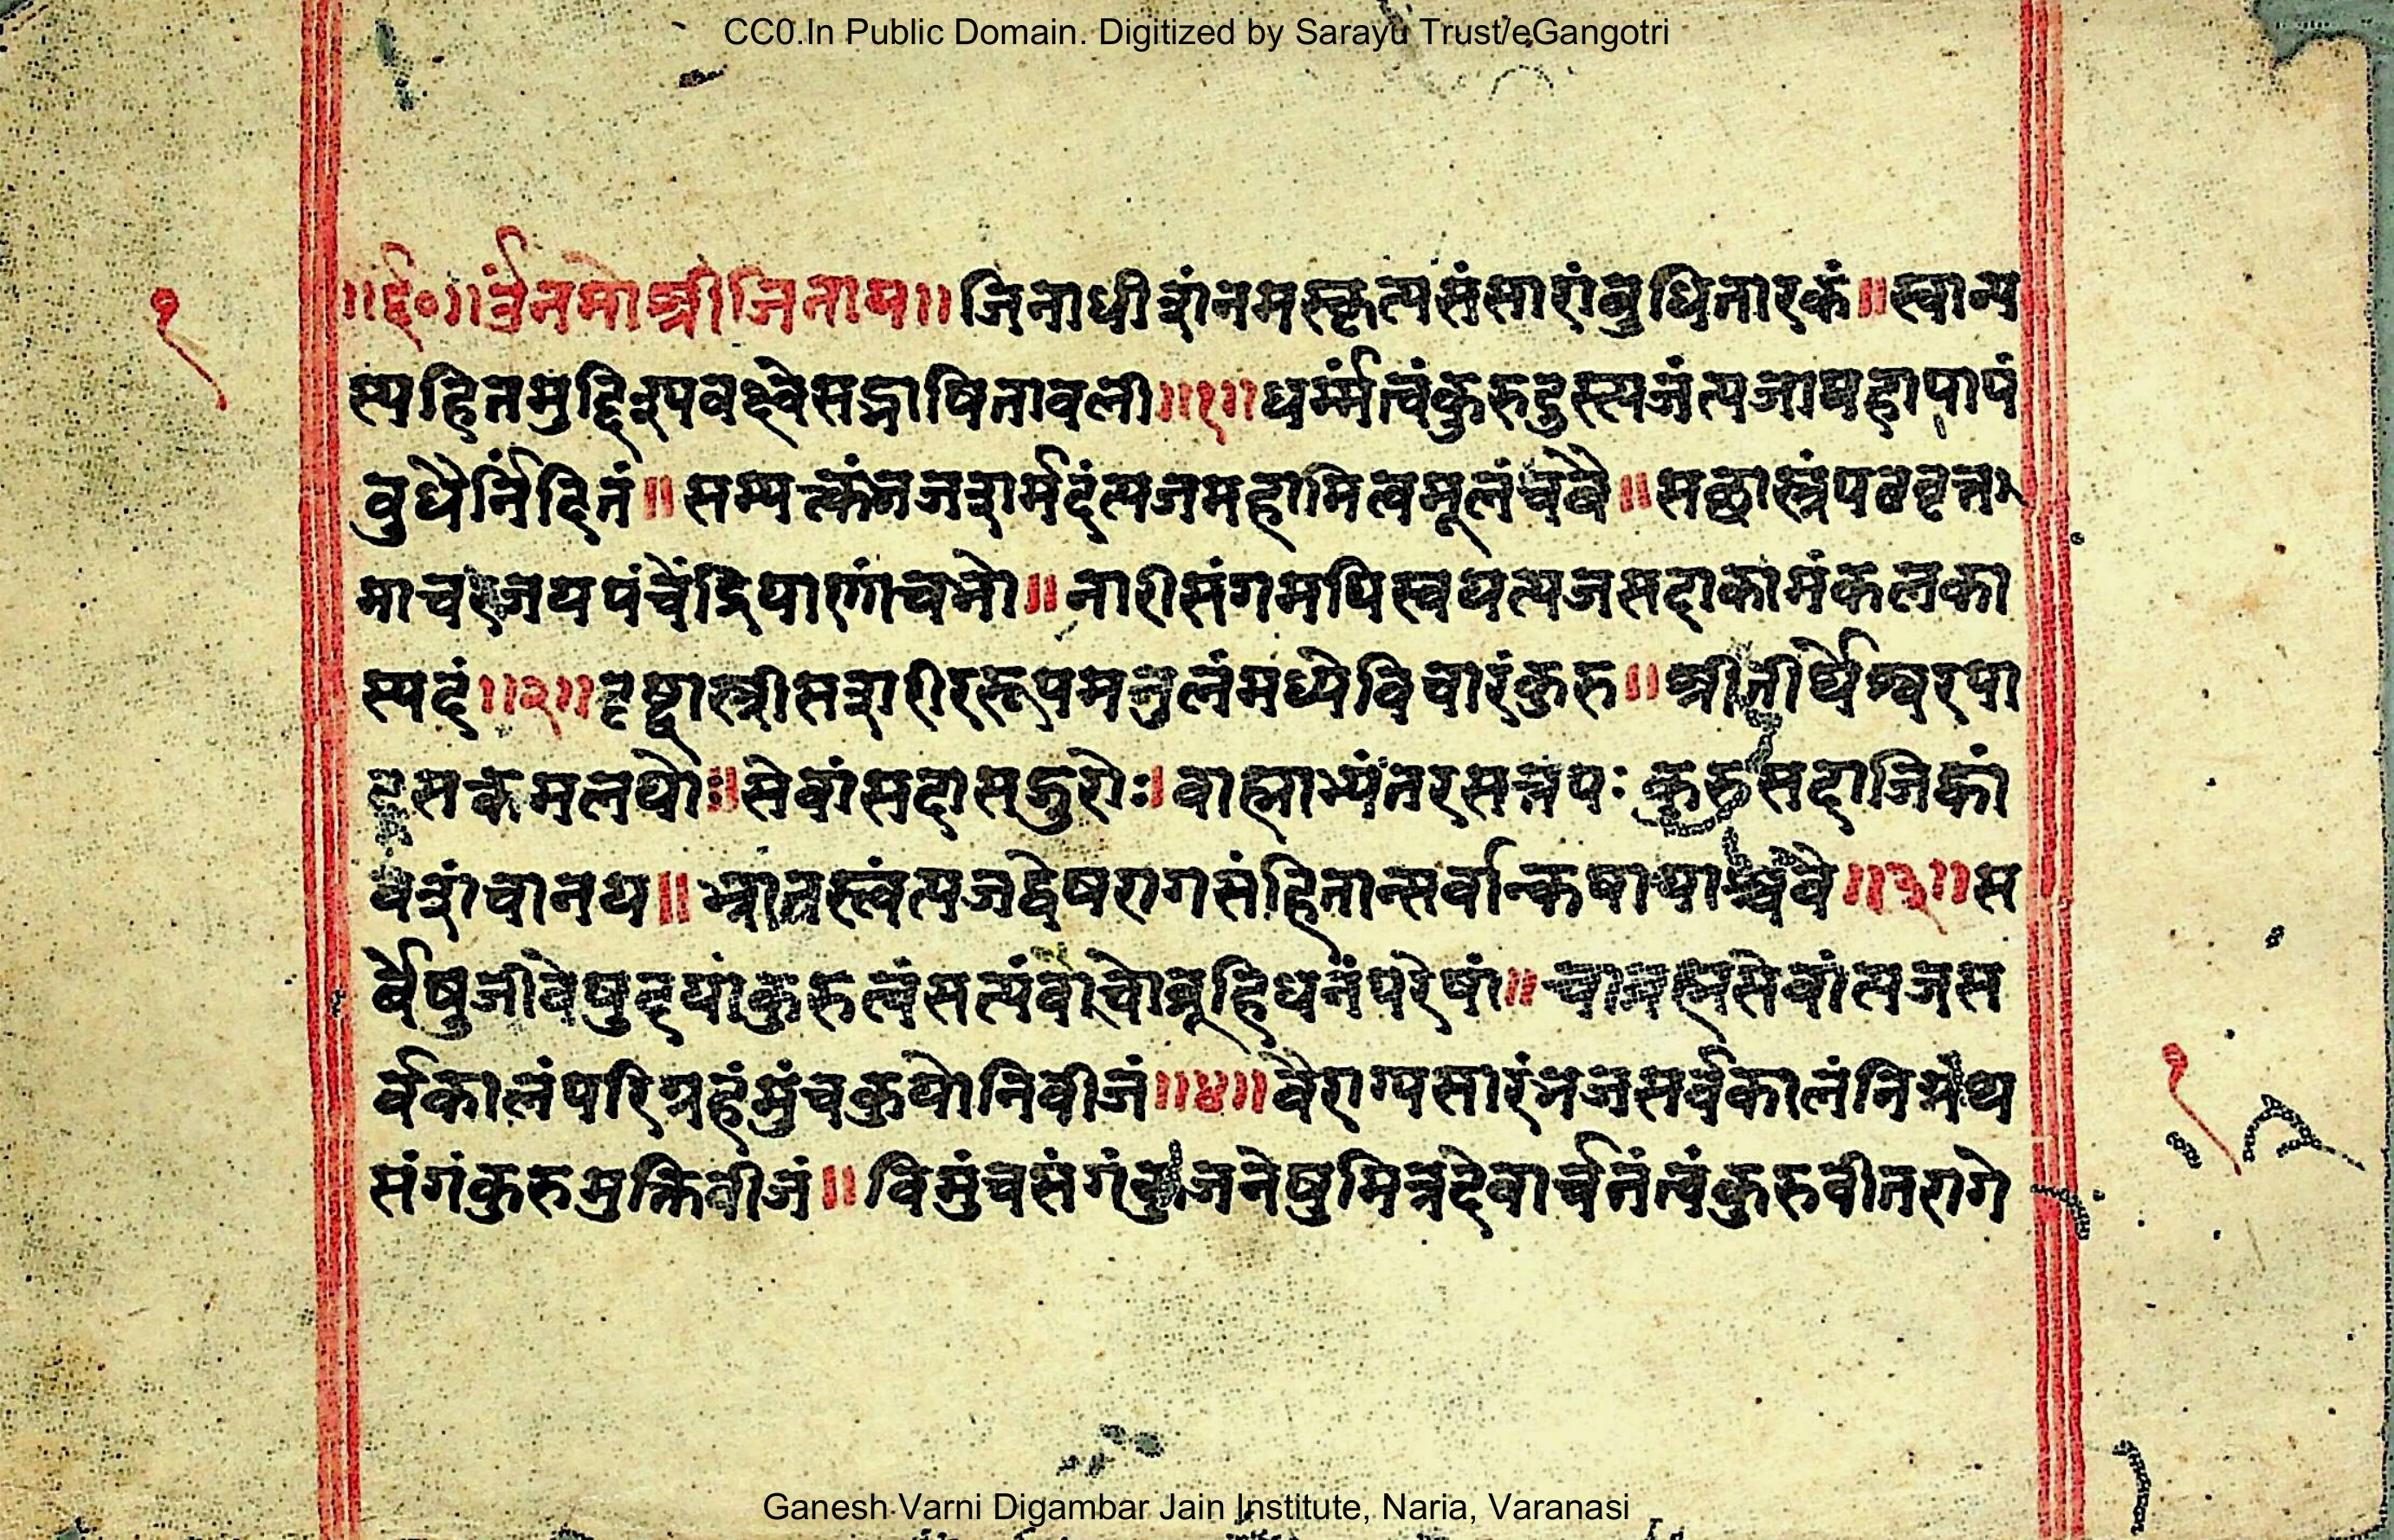 CC0.In Public Domain. Digitized by Sarayu Trust/eGangotri
१
॥र्द०॥ॐनमोश्रीजिनाय॥जिनाधीशंनमस्कृत्यसंसारांबुधितारकं॥स्वान्य
स्यहितमुद्दिश्यवक्ष्येसद्भाषितावली॥१॥धर्म्मंत्वंकुरुदुस्त्यजंत्यजमहापापं
बुधैर्निंदितं॥सम्यक्त्कंभजशर्मदंत्यजमहामित्वमूलंचवै॥सछास्त्रंपठवृत्त
माचरजयपंचेंद्रियाणांचभो॥नारीसंगमपिस्वयत्यजसदाकामंकलका
स्पदं॥२॥दृष्ट्वास्त्रीसशरीररूपमतुलंमध्येविचारंकुरु॥श्रीतीर्थेश्वरपा
दसकमलयोः॥सेवांसदासद्गुरोः।वाह्याभ्यंतरसत्तपःकुरुसदाजिह्वां
वशंचानय॥भ्रातस्त्वंत्यजद्वेषरागसंहितान्सर्वान्कषायाश्चवै॥३॥स
र्वेषुजीवेषुदयांकुरुत्वंसत्यंवोचोब्रूहिधनंपरेषां॥चाब्रह्मसेवांत्यजस
र्वकालंपरिग्रहंमुंचकुयोनिवीजं॥४॥वैराग्यसारंभजसर्वकालंनिर्ग्रंथ
संगंकुरुमुक्तिवीजं॥विमुंचसंगंकुजनेषुमित्रदेवार्चनंत्वंकुरुवीतरागे
१
Ganesh Varni Digambar Jain Institute, Naria, Varanasi